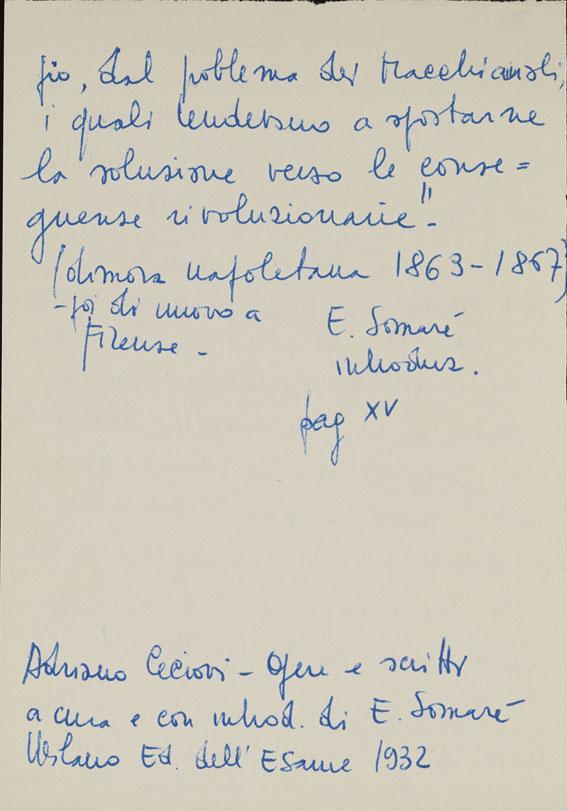 gio, dal problema dei Macchiaioli,
i quali tendevano a spostarne
la soluzione verso le conse=
guenze rivoluzionarie".
(dimora napoletana 1863-1867)
- poi di nuovo a
Firenze -
E. Somaré
introduz.
pag XV
Adriano Cecioni - Opere e scritti
a cura e con introd. di E. Somaré
Milano Ed. dell'Esame 1932